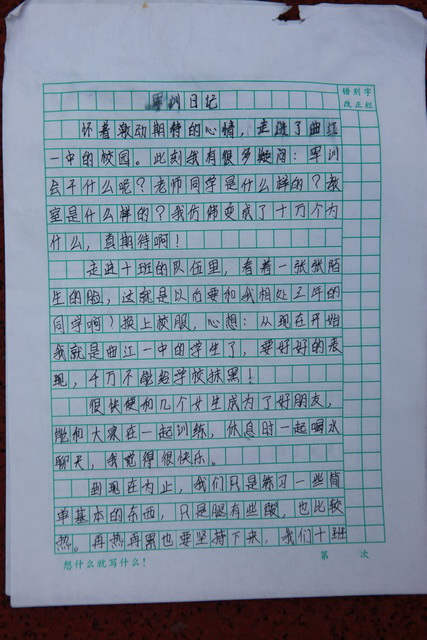 军训日记
错别字
改正栏
怀着激动期待的心情，走进了曲江
一中的校园。此刻我有很多疑问：军训
会干什么呢？老师同学是什么样的？教
室是什么样的？我仿佛变成了十万个为
什么，真期待啊！
走进十班的队伍里，看着一张张陌
生的脸，这就是以后要和我相处三年的
同学啊？换上校服，心想：从现在开始
我就是曲江一中的学生了，要好好的表
现，千万不能给学校抹黑！
很快便和几个女生成为了好朋友，
能和大家在一起训练，休息时一起喝水
聊天，我觉得很快乐。
到现在为止，我们只是练习一些简
单基本的东西，只是腿有些酸，也比较
热。再热再累也要坚持下来，我们十班
想什么就写什么！
第 次